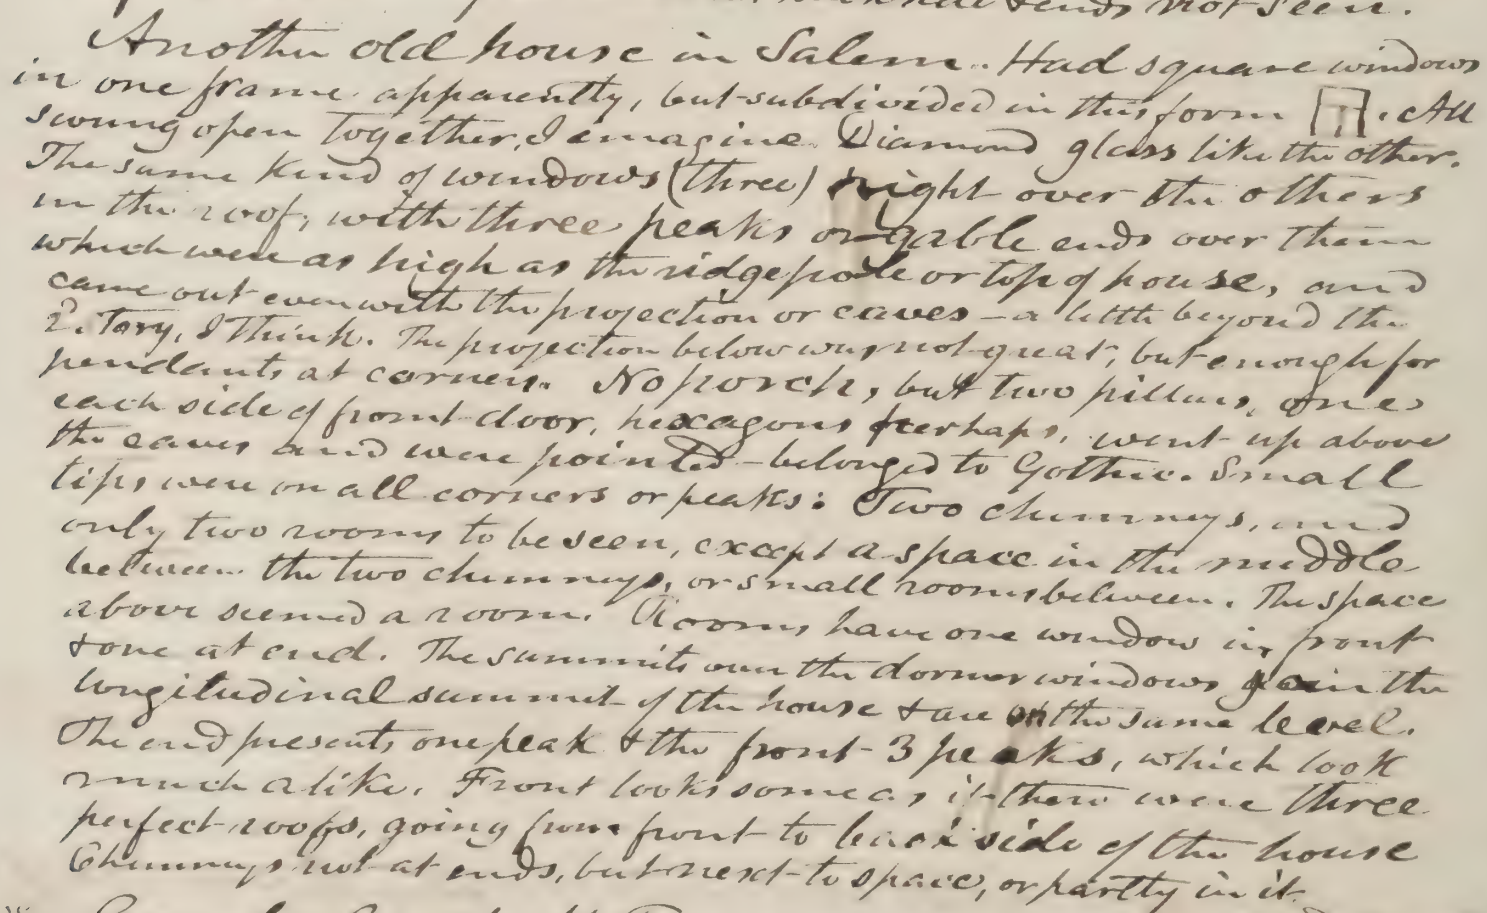 ends not seen.
Another old house in Salem. Had square windows
in one frame apparently, but subdivided in this form. All
swung open together, I imagine. Diamond glass like the other.
The same kind of windows (three) right over the others
in the roof, with three peaks or gable ends over them
which were as high as the ridgepole or top of house, and
came out even with the projection or eaves - a little beyond the
2. Tory, I think. The projection below was not great, but enough for
pendants at corners. No porch, but two pillars, one
each side of front door, hexagons perhaps, went up above
the eaves and were pointed - belonged to Gothic. Small
tips were on all corners or peaks: Two chimneys, and
only two rooms to be seen, except a space in the middle
between the two chimneys, or small rooms between. The space
above seemed a room. Rooms have one window in front
& one at end. The summits over the dormer windows join the
longitudinal summit of the house & are on the same level.
The end presents one peak & the front 3 peaks, which look
much alike. Front looks some as if there were three
perfect roofs, going from front to back side of the house
Chimneys not at ends, but next to space, or partly in it.